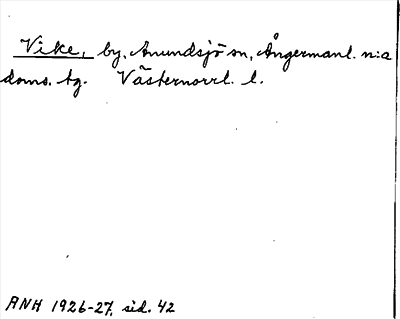 Vike, by, Anundsjö sn, Ångermanl. n:a
doms. tg. Västernorrl. l.
ANH 1926-27, sid. 42